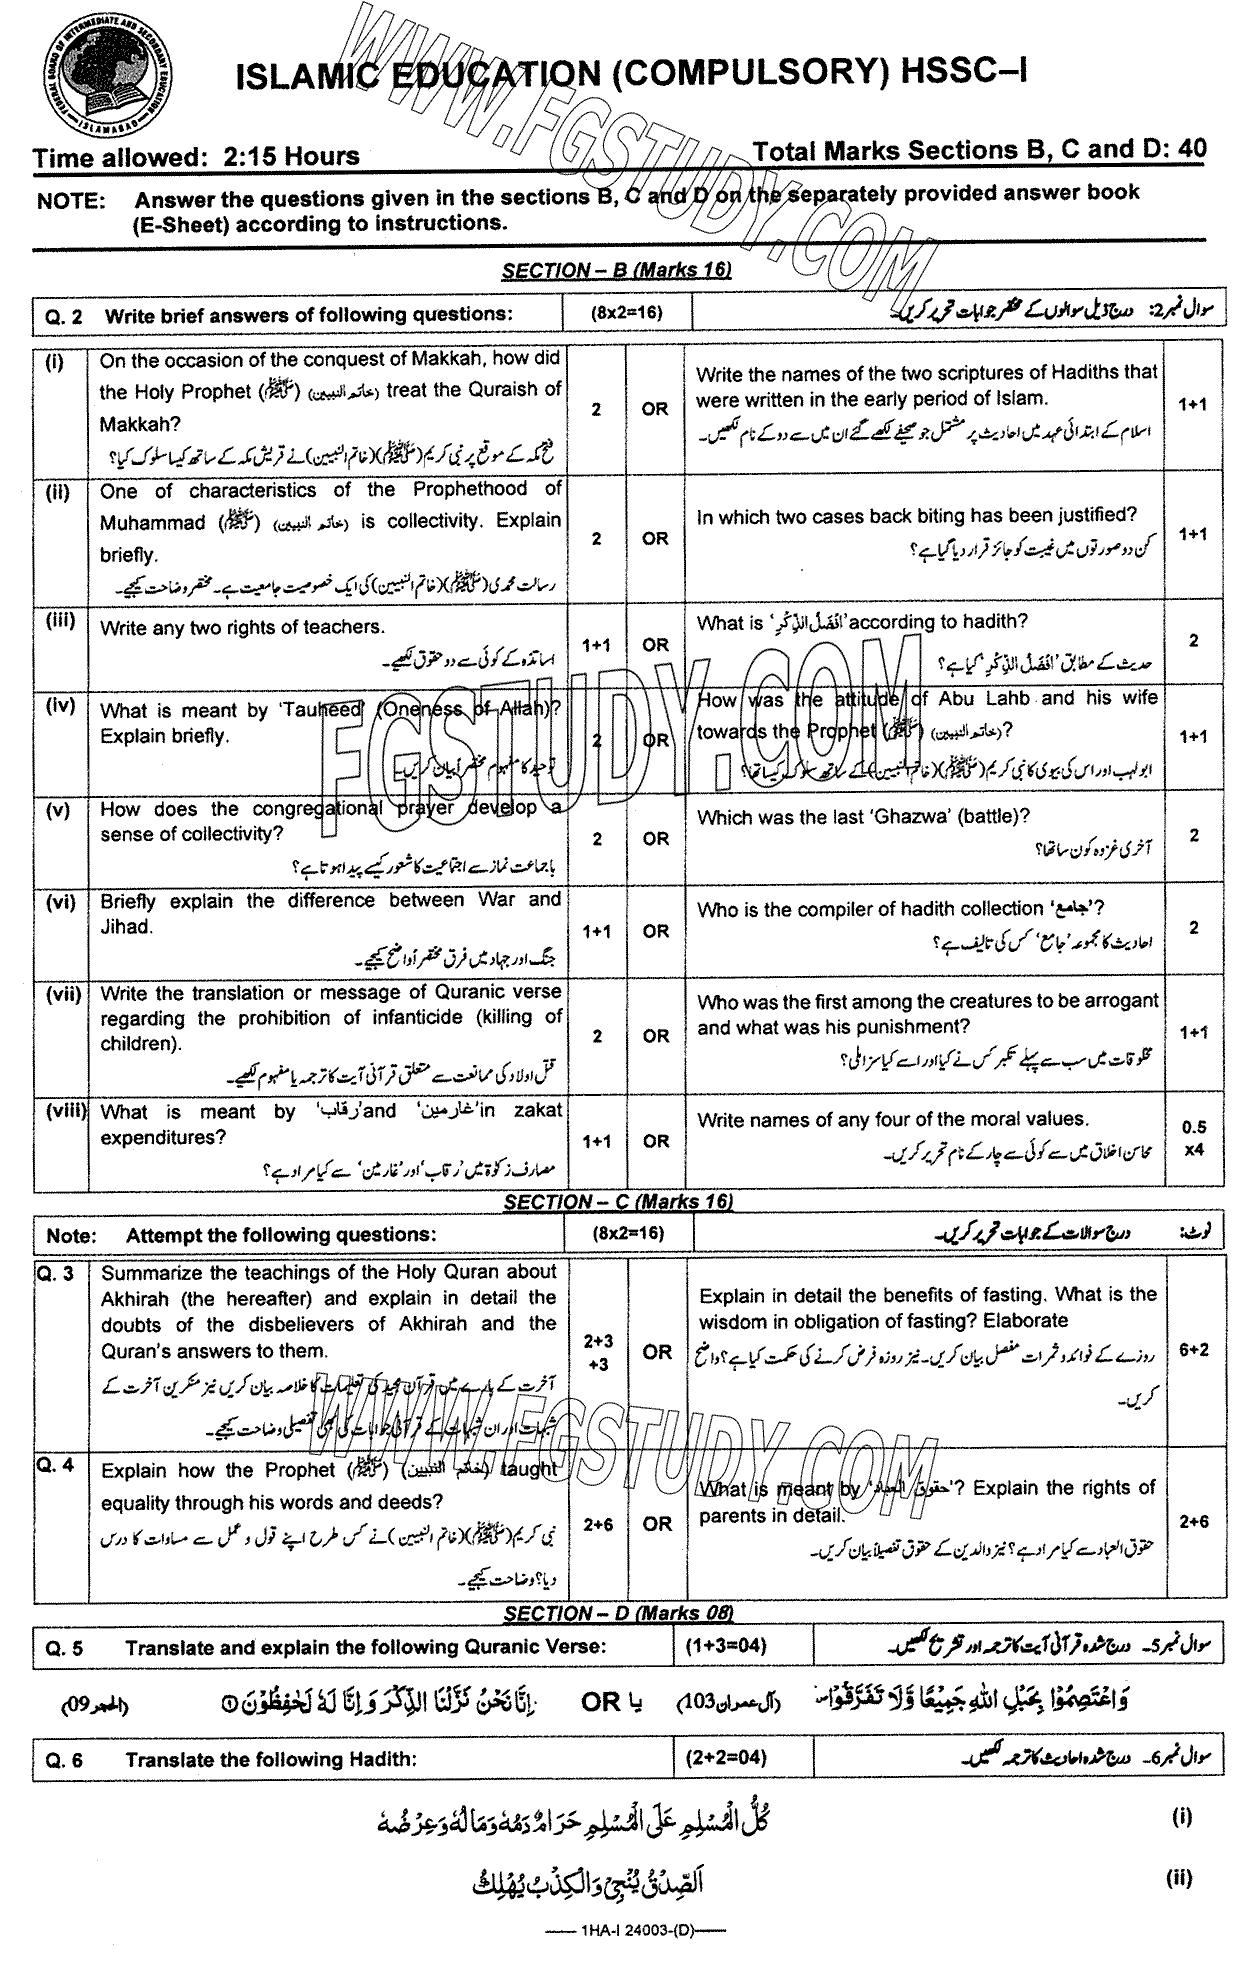 FEDERAL BOARD OF INTERMEDIATE AND SECONDARY EDUCATION
ISLAMABAD
WWW.FGSTUDY.COM
ISLAMIC EDUCATION (COMPULSORY) HSSC–I
Time allowed: 2:15 Hours
Total Marks Sections B, C and D: 40
NOTE: Answer the questions given in the sections B, C and D on the separately provided answer book
(E-Sheet) according to instructions.
SECTION – B (Marks 16)
Q. 2 Write brief answers of following questions: (8x2=16) سوال نمبر 2: درج ذیل سوالوں کے مختصر جوابات تحریر کریں۔
(i) On the occasion of the conquest of Makkah, how did
the Holy Prophet (ﷺ) (خاتم النبیین) treat the Quraish of
Makkah?
فتح مکہ کے موقع پر نبی کریم (ﷺ)(خاتم النبیین) نے قریش مکہ کے ساتھ کیسا سلوک کیا؟
2
OR
Write the names of the two scriptures of Hadiths that
were written in the early period of Islam.
اسلام کے ابتدائی عہد میں احادیث پر مشتمل جو صحیفے لکھے گئے ان میں سے دو کے نام لکھیں۔
1+1
(ii) One of characteristics of the Prophethood of
Muhammad (ﷺ) (خاتم النبیین) is collectivity. Explain
briefly.
رسالت محمدی (ﷺ)(خاتم النبیین) کی ایک خصوصیت جامعیت ہے۔ مختصر وضاحت کیجیے۔
2
OR
In which two cases back biting has been justified?
کن دو صورتوں میں غیبت کو جائز قرار دیا گیا ہے؟
1+1
(iii) Write any two rights of teachers.
اساتذہ کے کوئی سے دو حقوق لکھیے۔
1+1
OR
What is ‘اَفْضَلُ الذِّکْرِ’ according to hadith?
حدیث کے مطابق ‘اَفْضَلُ الذِّکْرِ’ کیا ہے؟
2
(iv) What is meant by ‘Tauheed’ (Oneness of Allah)?
Explain briefly.
توحید کا مفہوم مختصراً بیان کریں۔
2
OR
How was the attitude of Abu Lahb and his wife
towards the Prophet (ﷺ) (خاتم النبیین)?
ابولہب اور اس کی بیوی کا نبی کریم (ﷺ)(خاتم النبیین) کے ساتھ سلوک کیسا تھا؟
1+1
(v) How does the congregational prayer develop a
sense of collectivity?
باجماعت نماز سے اجتماعیت کا شعور کیسے پیدا ہوتا ہے؟
2
OR
Which was the last ‘Ghazwa’ (battle)?
آخری غزوہ کون سا تھا؟
2
(vi) Briefly explain the difference between War and
Jihad.
جنگ اور جہاد میں فرق مختصراً واضح کیجیے۔
1+1
OR
Who is the compiler of hadith collection ‘جامع’?
احادیث کا مجموعہ ‘جامع’ کس کی تالیف ہے؟
2
(vii) Write the translation or message of Quranic verse
regarding the prohibition of infanticide (killing of
children).
قتل اولاد کی ممانعت سے متعلق قرآنی آیت کا ترجمہ یا مفہوم لکھیے۔
2
OR
Who was the first among the creatures to be arrogant
and what was his punishment?
مخلوقات میں سب سے پہلے تکبر کس نے کیا اور اسے کیا سزا ملی؟
1+1
(viii) What is meant by ‘رقاب’ and ‘غارمین’ in zakat
expenditures?
مصارف زکوٰۃ میں ‘رقاب’ اور ‘غارمین’ سے کیا مراد ہے؟
1+1
OR
Write names of any four of the moral values.
محاسن اخلاق میں سے کوئی سے چار کے نام تحریر کریں۔
0.5
x4
SECTION – C (Marks 16)
Note: Attempt the following questions: (8x2=16) نوٹ: درج سوالات کے جوابات تحریر کریں۔
Q. 3 Summarize the teachings of the Holy Quran about
Akhirah (the hereafter) and explain in detail the
doubts of the disbelievers of Akhirah and the
Quran’s answers to them.
آخرت کے بارے میں قرآن مجید کی تعلیمات کا خلاصہ بیان کریں نیز منکرین آخرت کے
شبہات اور ان شبہات کے قرآنی جوابات کی بھی تفصیلی وضاحت کیجیے۔
2+3
+3
OR
Explain in detail the benefits of fasting. What is the
wisdom in obligation of fasting? Elaborate
روزے کے فوائد و ثمرات مفصل بیان کریں۔ نیز روزہ فرض کرنے کی حکمت کیا ہے؟ واضح
کریں۔
6+2
Q. 4 Explain how the Prophet (ﷺ) (خاتم النبیین) taught
equality through his words and deeds?
نبی کریم (ﷺ)(خاتم النبیین) نے کس طرح اپنے قول و عمل سے مساوات کا درس
دیا؟ وضاحت کیجیے۔
2+6
OR
What is meant by ‘حقوق العباد’? Explain the rights of
parents in detail.
حقوق العباد سے کیا مراد ہے؟ نیز والدین کے حقوق تفصیلاً بیان کریں۔
2+6
SECTION – D (Marks 08)
Q. 5 Translate and explain the following Quranic Verse: (1+3=04) سوال نمبر 5۔ درج شدہ قرآنی آیت کا ترجمہ اور تشریح لکھیں۔
وَاعْتَصِمُوْا بِحَبْلِ اللّٰهِ جَمِيْعًا وَّلَا تَفَرَّقُوْا (آل عمران 103) یا OR اِنَّا نَحْنُ نَزَّلْنَا الذِّكْرَ وَاِنَّا لَهٗ لَحٰفِظُوْنَ (الحجر 09)
Q. 6 Translate the following Hadith: (2+2=04) سوال نمبر 6۔ درج شدہ احادیث کا ترجمہ لکھیں۔
(i) كُلُّ الْمُسْلِمِ عَلَى الْمُسْلِمِ حَرَامٌ دَمُهٗ وَمَالُهٗ وَعِرْضُهٗ
(ii) اَلصِّدْقُ يُنْجِيْ وَالْكِذْبُ يُهْلِكُ
—— 1HA-I 24003-(D) ——
WWW.FGSTUDY.COM